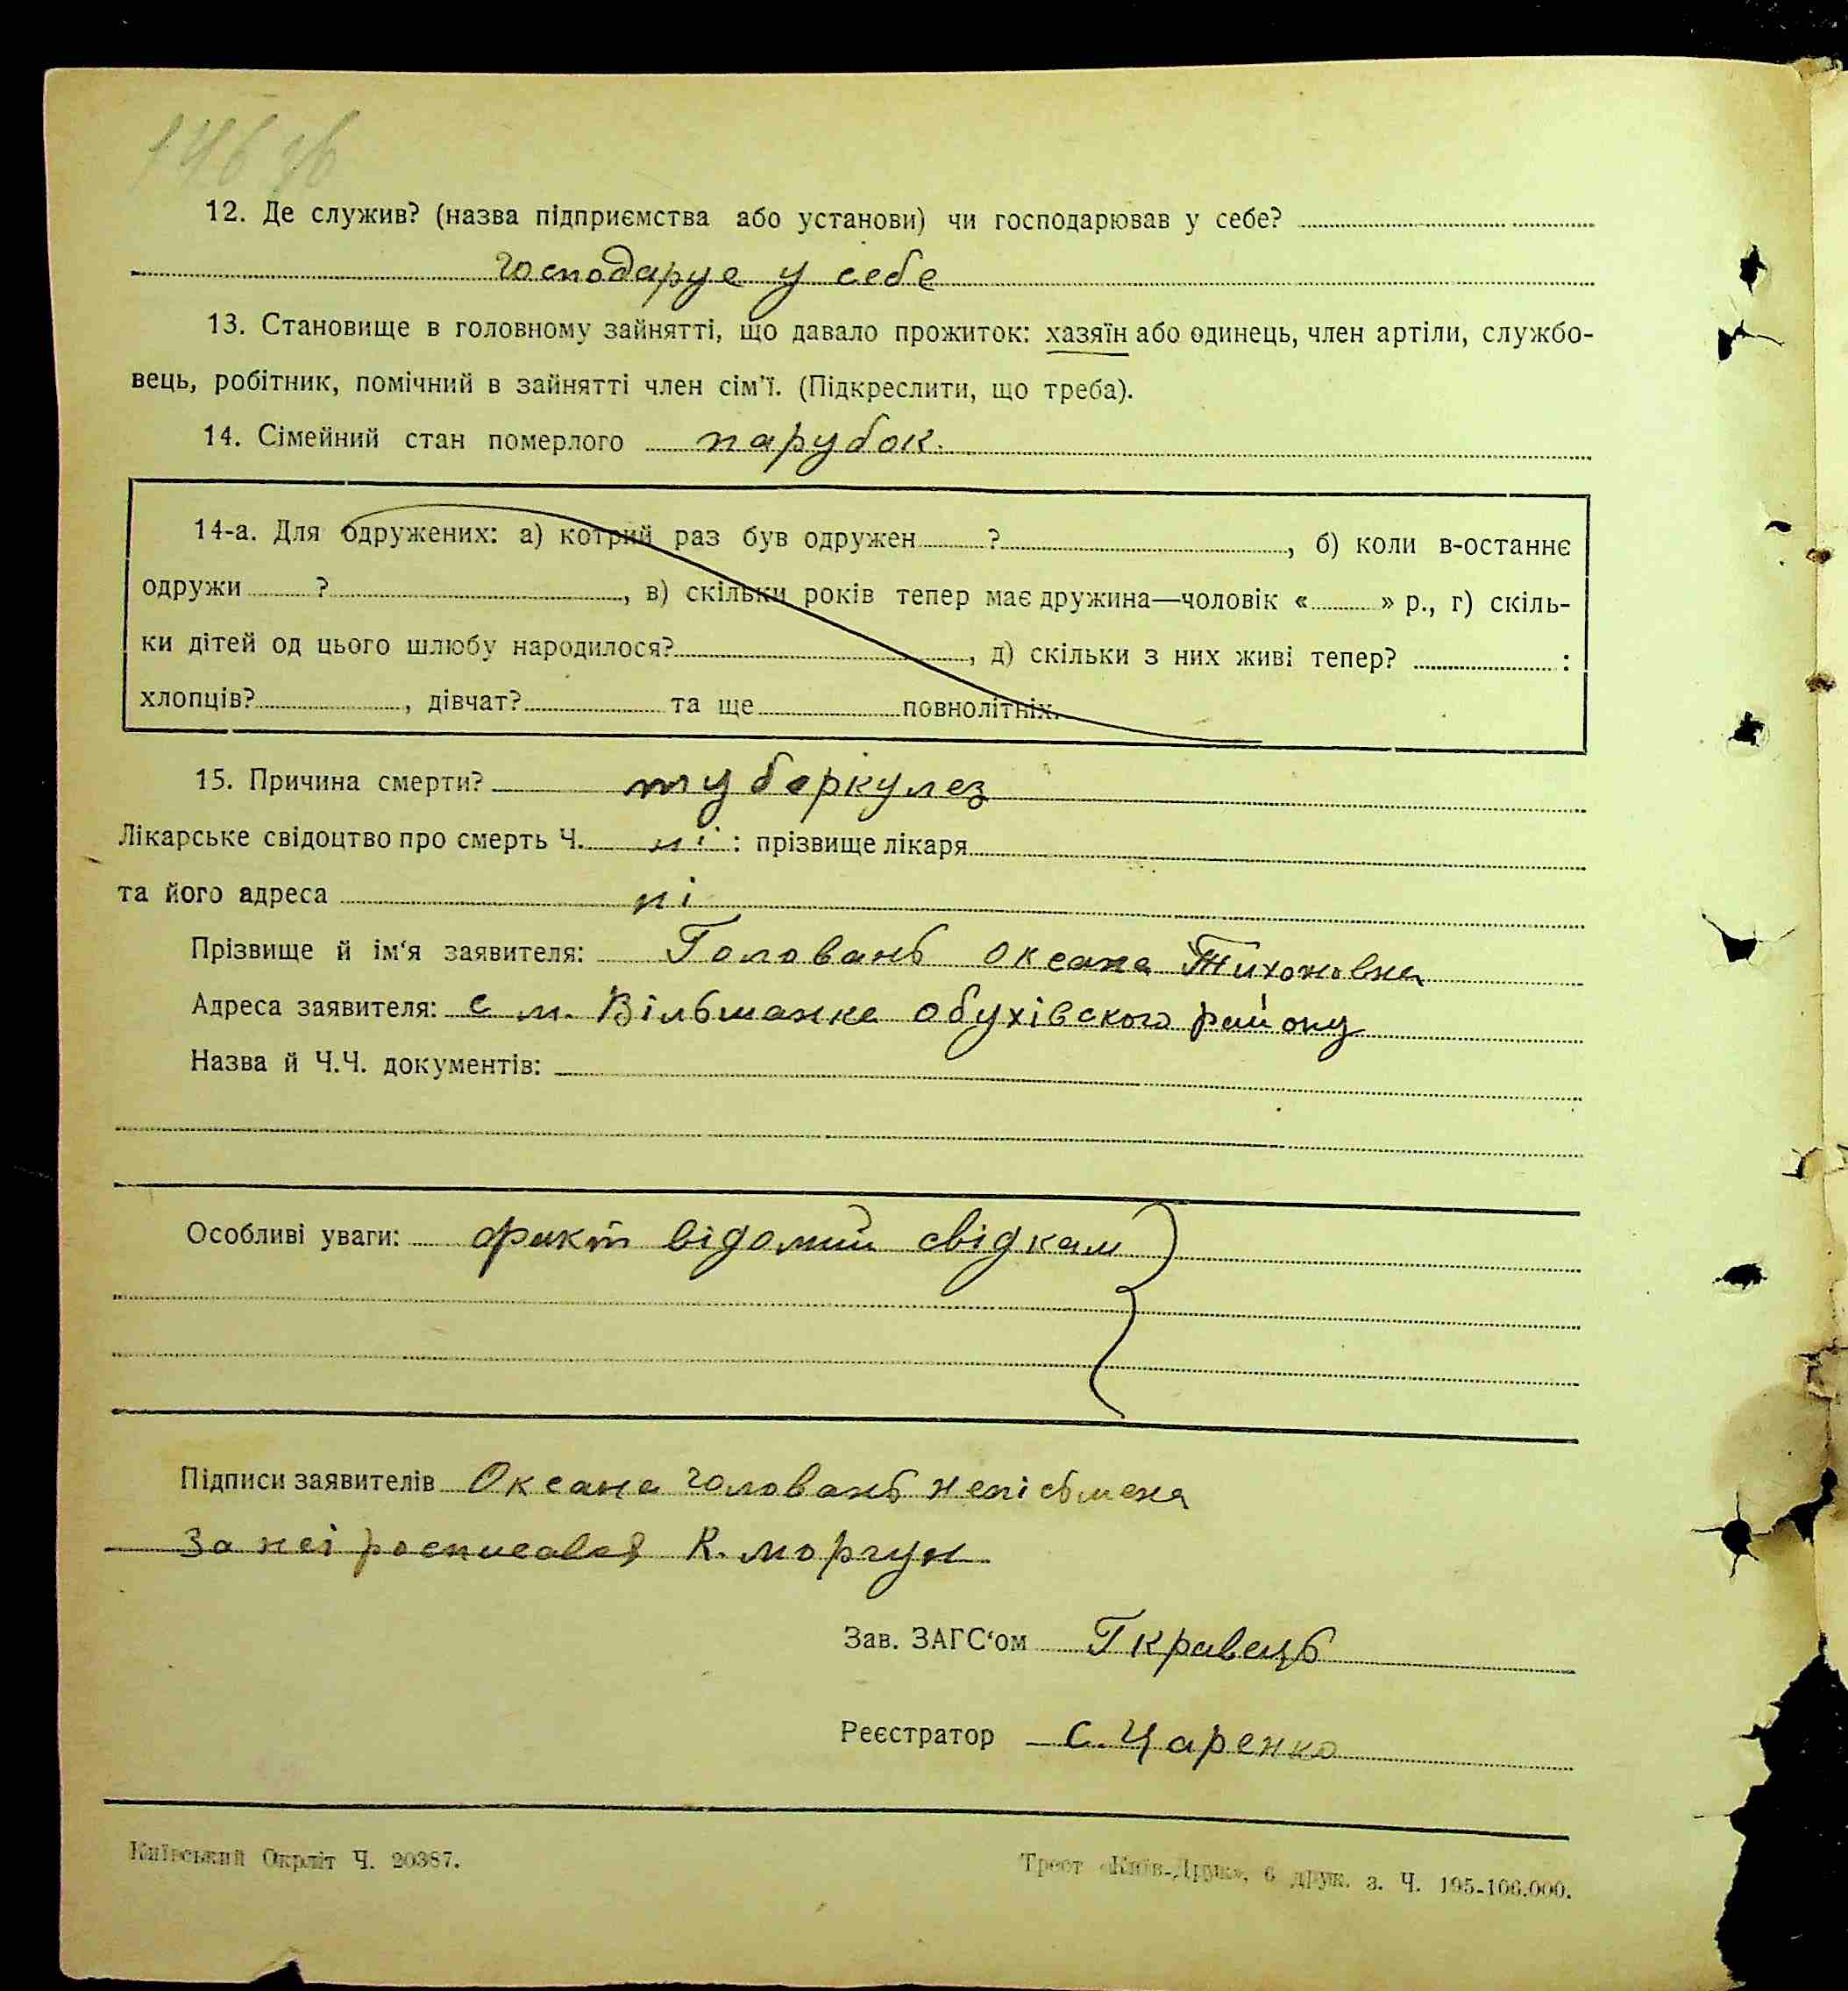 146 зв
12. Де служив? (назва підприємства або установи) чи господарював у себе?
господарує у себе
13. Становище в головному зайнятті, що давало прожиток: хазяїн або одинець, член артіли, службо-
вець, робітник, помічний в зайнятті член сім'ї. (Підкреслити, що треба).
14. Сімейний стан померлого парубок.
14-а. Для одружених: а) котрий раз був одружен ? , б) коли в-останнє
одружи ? , в) скільки років тепер має дружина—чоловік « » р., г) скіль-
ки дітей од цього шлюбу народилося? , д) скільки з них живі тепер? :
хлопців? , дівчат? та ще повнолітніх.
15. Причина смерти? туберкулез
Лікарське свідоцтво про смерть Ч. ні : прізвище лікаря
та його адреса ні
Прізвище й ім'я заявителя: Головань Оксана Тихоновна
Адреса заявителя: с м. Вільшанка Обухівского району
Назва й Ч.Ч. документів:
Особливі уваги: факт відомий свідкам
Підписи заявителів Оксана Головань непісьмена
За неі росписався К. Моргун
Зав. ЗАГС'ом Г Кравець
Реєстратор С. Царенко
Київський Окрліт Ч. 20387.
Трест «Київ-Друк», 6 друк. з. Ч. 195-106.000.